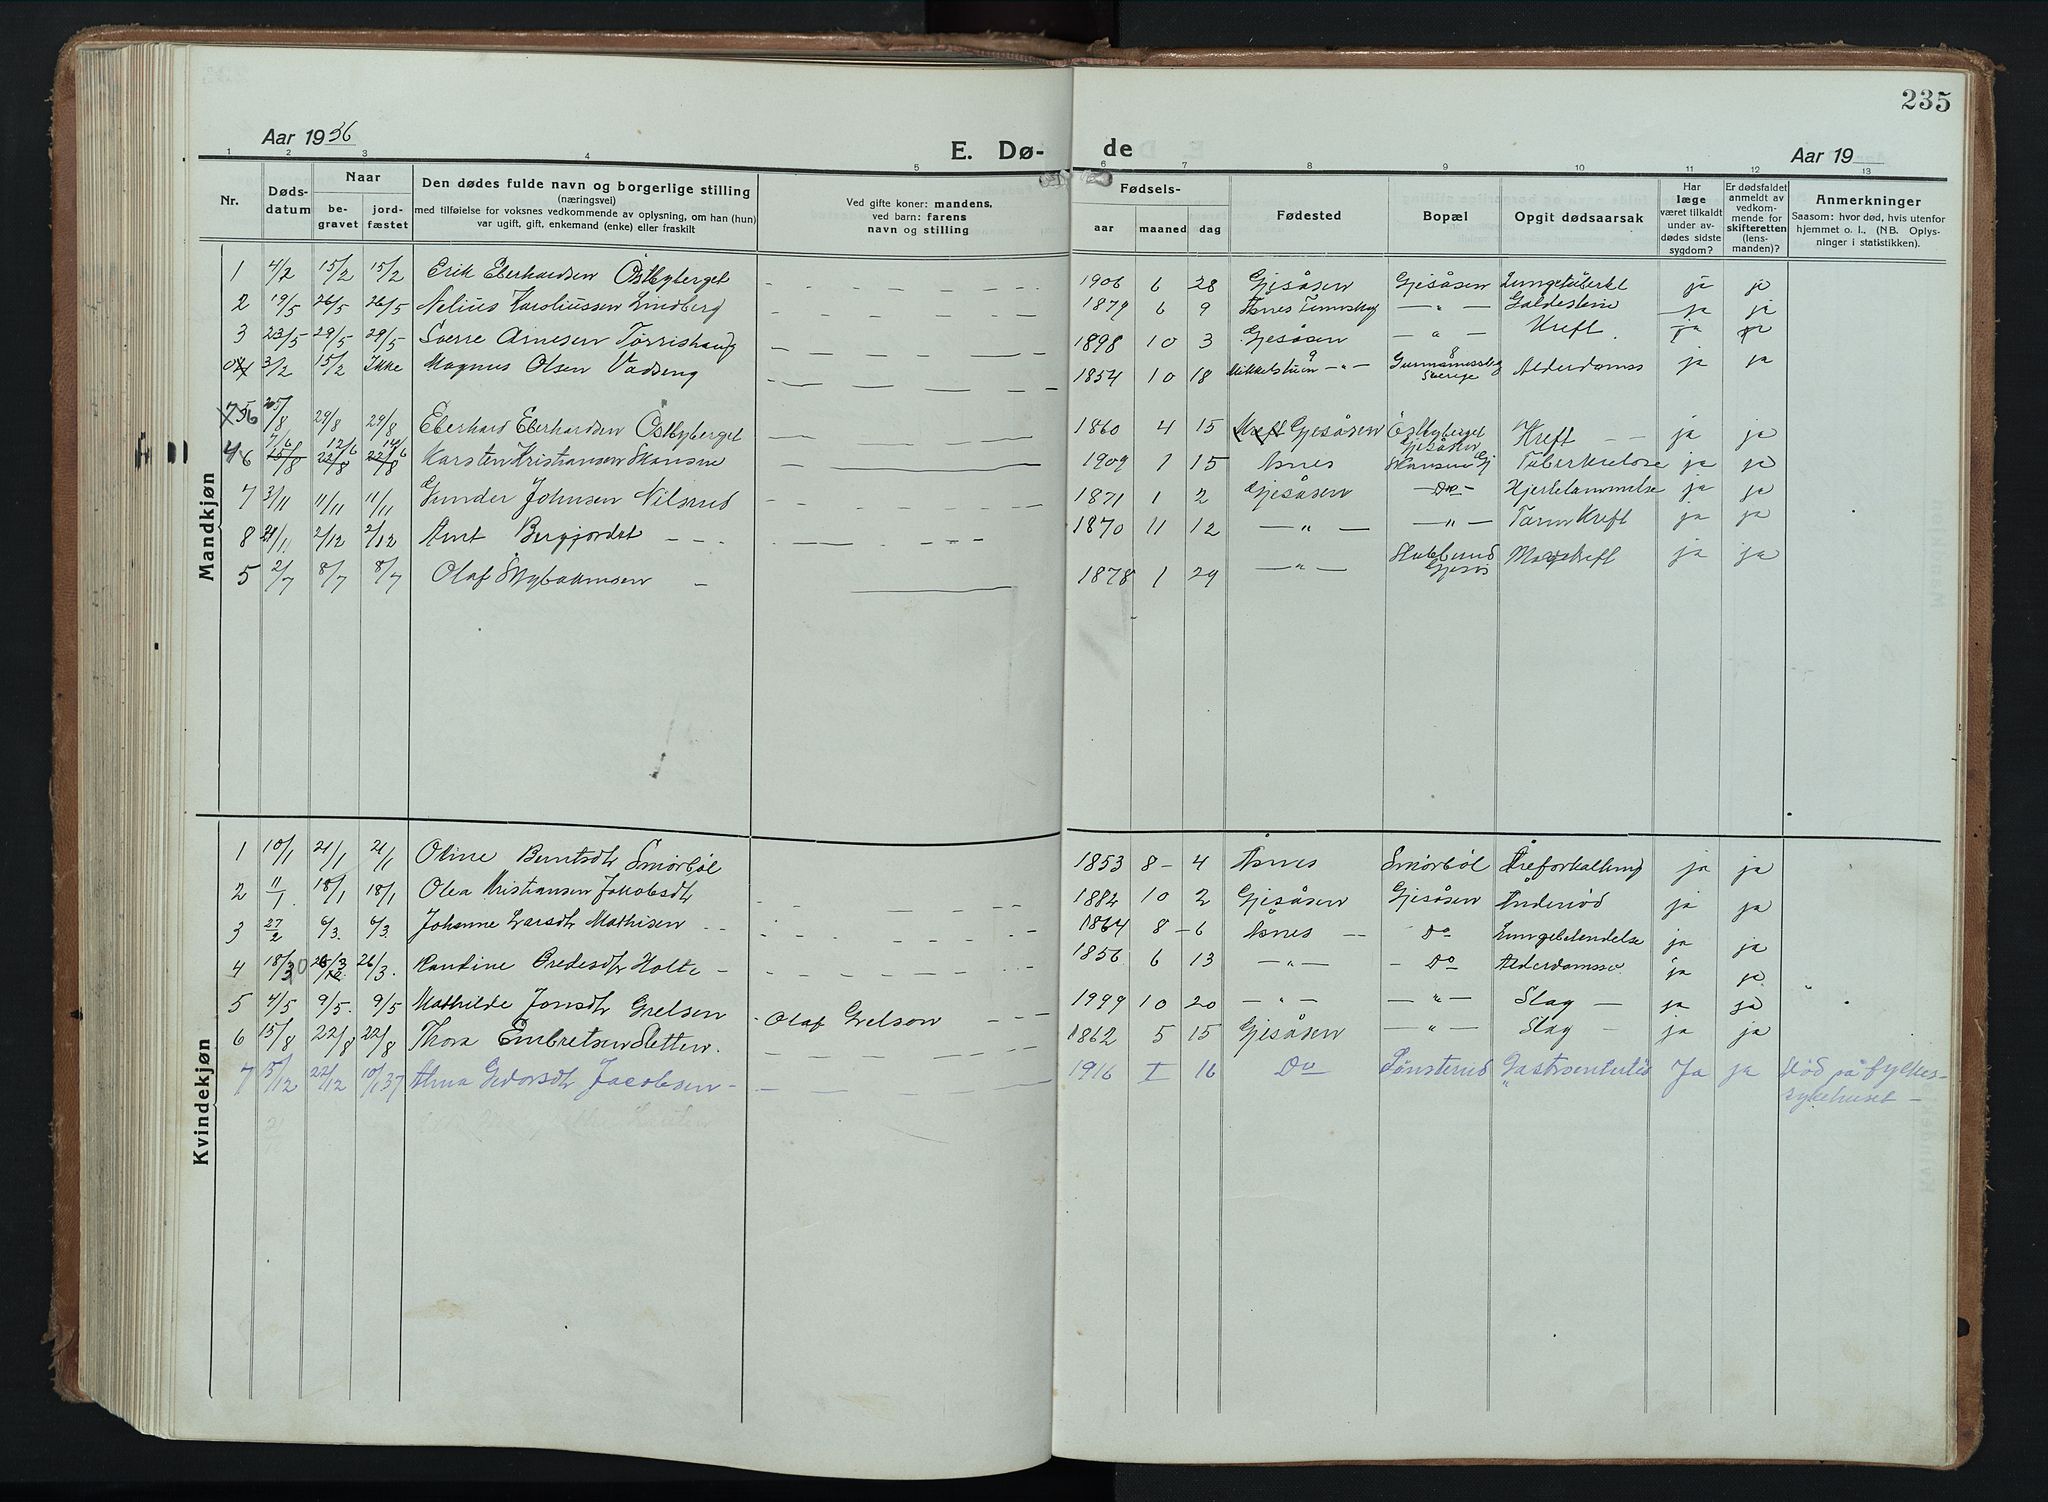 235
Aar 1936
E. Dø- de
Aar 19
1 2 3 4 5 6 7 8 9 10 11 12 13
Nr.
Døds-
datum
Naar
be-
gravet
jord-
fæstet
Den dødes fulde navn og borgerlige stilling
(næringsvei)
med tilføielse for voksnes vedkommende av oplysning, om han (hun)
var ugift, gift, enkemand (enke) eller fraskilt
Ved gifte koner: mandens,
ved barn: farens
navn og stilling
Fødsels-
aar maaned dag
Fødested
Bopæl
Opgit dødsaarsak
Har
læge
været tilkaldt
under av-
dødes sidste
sygdom?
Er dødsfaldet
anmeldt av
vedkom-
mende for
skifteretten
(lens-
manden)?
Anmerkninger
Saasom: hvor død, hvis utenfor
hjemmet o. l., (NB. Oplys-
ninger i statistikken).
Mandkjøn
1 4/2 15/2 15/2 Erik Eberhardsen Östbyberget 1906 6 28 Gjesåsen Gjesåsen Lungetuberkl ja ja
2 19/5 26/5 26/5 Nelius Karoliussen Lindberg 1879 6 9 Åsnes Finnskog — " — Galdestene ja ja
3 23/5 29/5 29/5 Sverre Arnesen Tørrishaug 1898 10 3 Gjesåsen — " — Kreft ja ja
4 3/2 15/2 Ikke Magnus Olsen Vadseng 1854 10 18 Sverige Alderdomss ja ja
6 29/8 29/8 Eberhard Eberhardsen Östbyberget 1860 4 15 Gjesåsen Östbyberget Gjesåsen Kreft ja ja
7/6 12/6 14/6 Karsten Kristiansen Skansen 1909 1 15 Åsnes Skansen Gj Tuberkulose ja ja
7 3/11 11/11 11/11 Gunder Johnsen Nilsrud 1871 1 2 Gjesåsen — Do — Hjertelammelse ja ja
8 2/12 2/12 Arnt Bergjordet 1870 11 12 — " — — " — Tarmkreft ja ja
5 2/7 8/7 8/7 Olaf 1878 1 29 — " — Mavekreft ja ja
Kvindekjøn
1 10/1 21/1 21/1 Oline Berntsdtr Smörböl 1853 8 - 4 Åsnes Smörböl Åreforkalkning ja ja
2 11/1 18/1 18/1 Olea Kristiansen Jakobsdtr 1884 10 2 Gjesåsen Gjesåsen Åndenöd ja ja
3 27/2 6/3. 6/3. Johanne Larsdtr Mathisen 1864 8 - 6 Åsnes Do Lungebetendelse ja ja
4 18/3 26/3 26/3. Randine Bredesdtr Holte 1856 6 13 — " — — Do — Alderdomssv ja ja
5 4/5 9/5. 9/5 Mathilde Jonsdtr Grelsen Olaf Grelson 1999 10 20 — " — — " — Slag — ja ja
6 15/8 22/8 22/8 Thora Embretsen Sletten. 1862 5 15 Gjesåsen — " — Slag — ja ja
7 5/12 22/12 10/1 37 Alma Jacobsen 1916 I 16 Do Ja ja död på fylkes-
sykehuset —